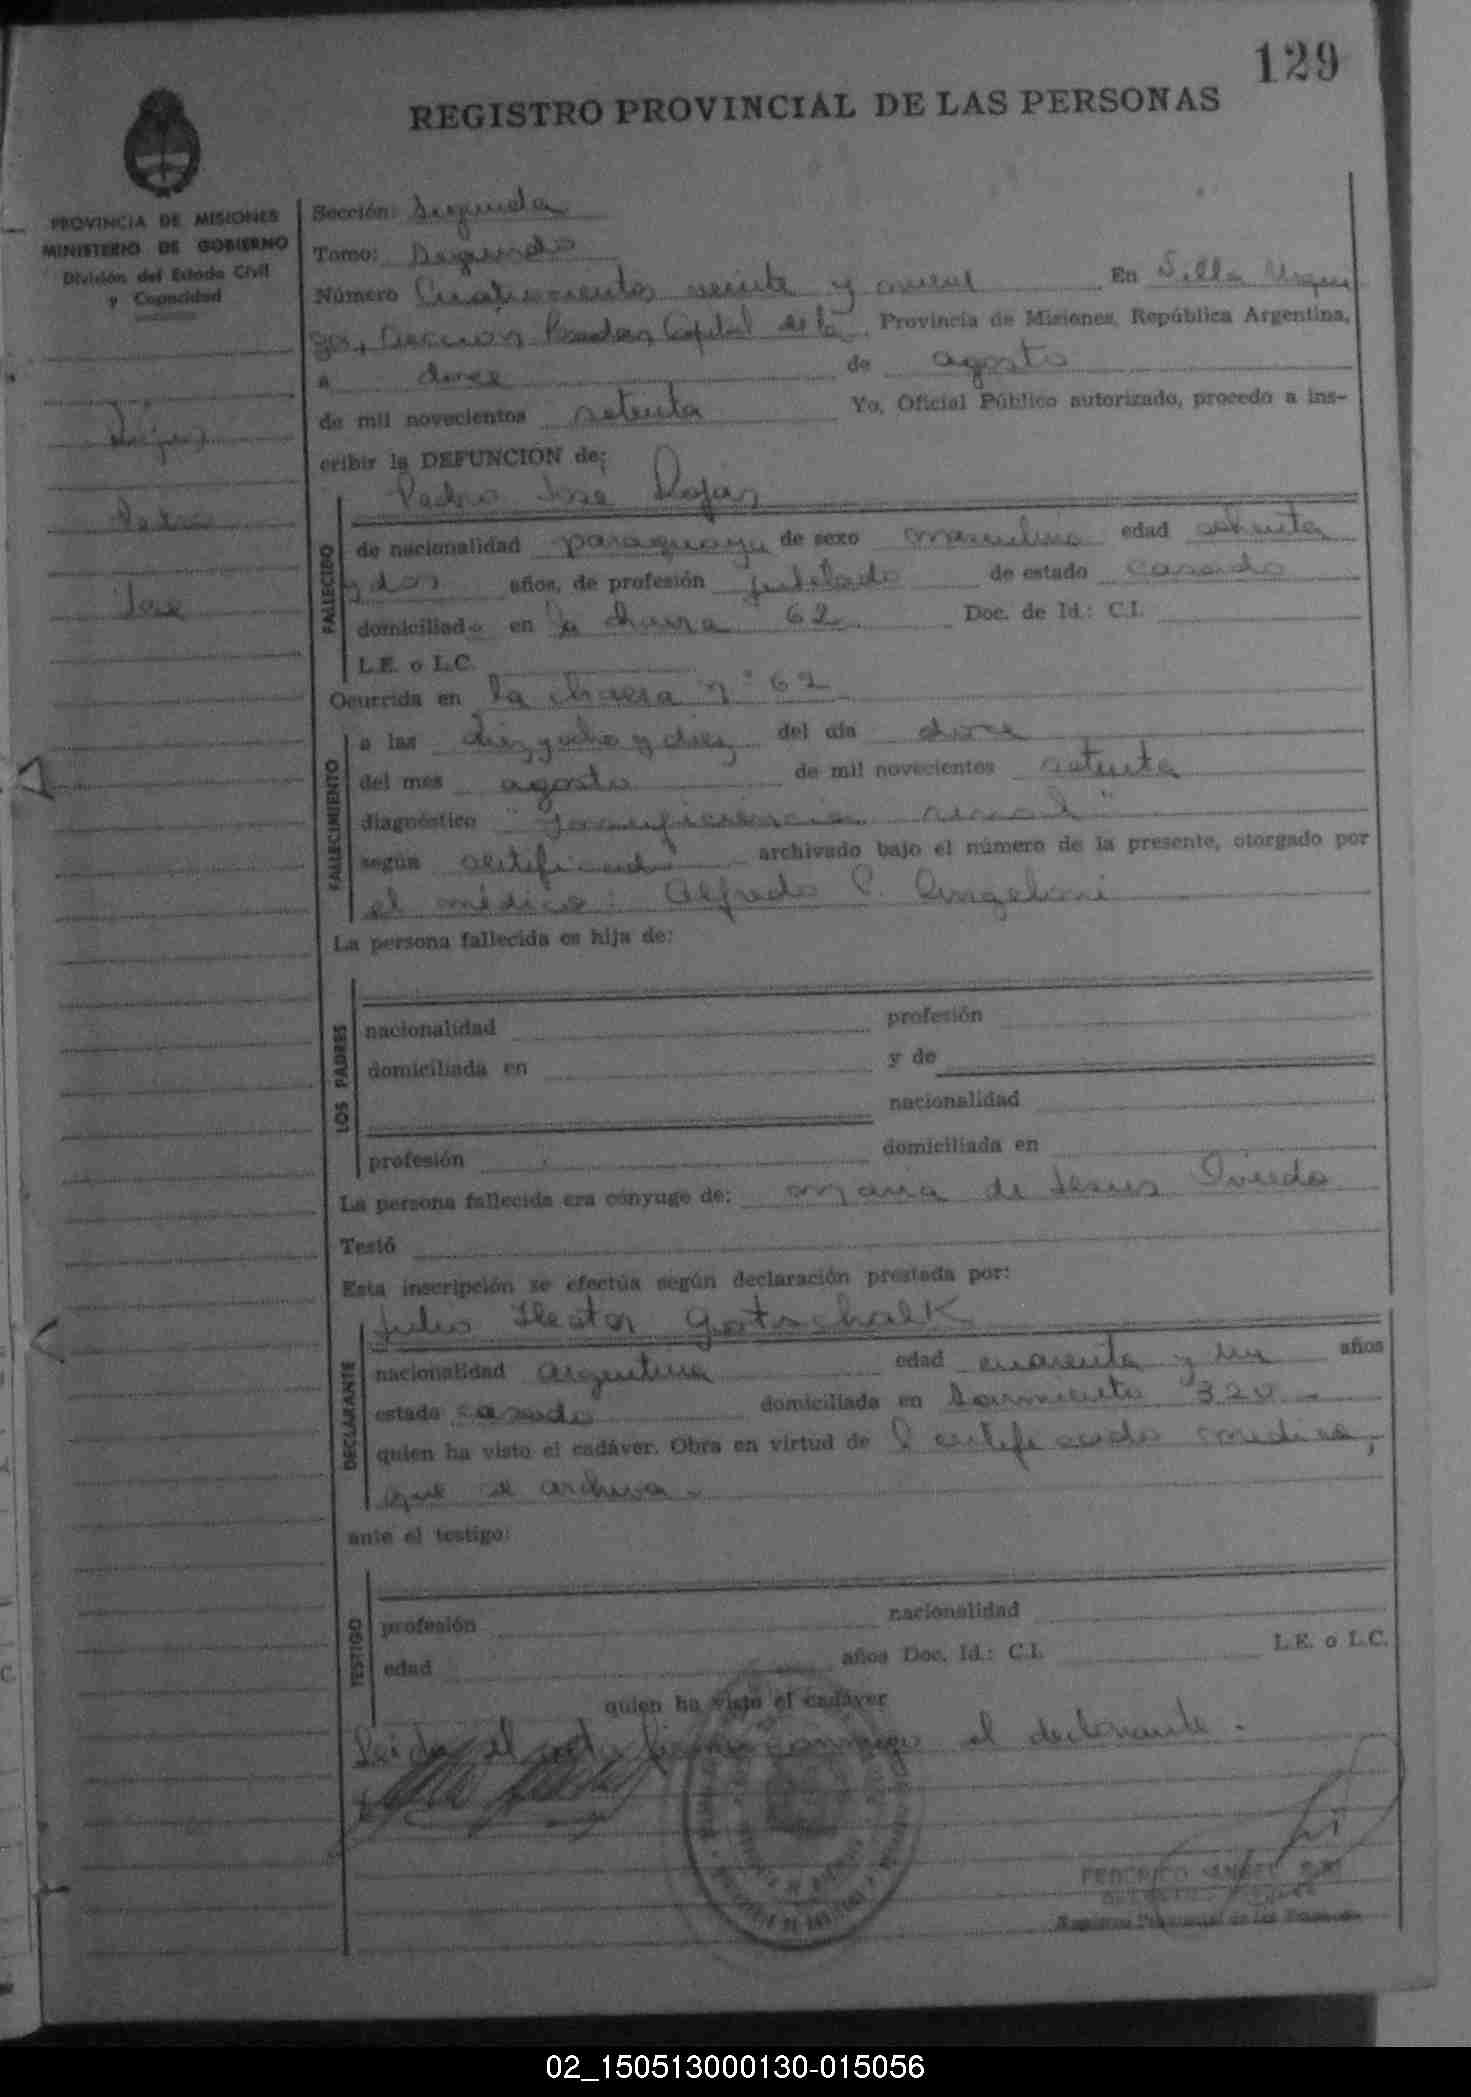 129
REGISTRO PROVINCIAL DE LAS PERSONAS
PROVINCIA DE MISIONES
MINISTERIO DE GOBIERNO
División del Estado Civil
y Capacidad
Pedro
José
Sección: Segunda
Tomo: Segundo
Número Cuatrocientos veinte y nueve En Villa Urqui
za, Sección Posadas Capital de la Provincia de Misiones, República Argentina,
a doce de agosto
de mil novecientos setenta Yo, Oficial Público autorizado, procedo a ins-
cribir la DEFUNCION de;
Pedro José Rojas
FALLECIDO
de nacionalidad paraguaya de sexo masculino edad ochenta
y dos años, de profesión jubilado de estado casado
domiciliado en la chacra 62 Doc. de Id.: C.I.
L.E. o L.C.
Ocurrida en la chacra nº 62
FALLECIMIENTO
a las diez y ocho y diez del día doce
del mes agosto de mil novecientos setenta
diagnóstico "Insuficiencia renal"
según certificado archivado bajo el número de la presente, otorgado por
el médico: Alfredo P. Angeloni
La persona fallecida es hija de:
LOS PADRES
nacionalidad profesión
domiciliada en y de
nacionalidad
profesión domiciliada en
La persona fallecida era cónyuge de: María de Jesus Oviedo
Testó
Esta inscripción se efectúa según declaración prestada por:
Julio Hector Gotschalk
DECLARANTE
nacionalidad argentina edad cuarenta y un años
estado casado domiciliada en Sarmiento 320 -
quien ha visto el cadáver. Obra en virtud de l certificado medico,
que se archiva.-
ante el testigo:
TESTIGO
profesión nacionalidad
edad años Doc. Id.: C.I. L.E. o L.C.
quien ha visto el cadáver
Leida el acta firma conmigo el declarante.
FEDERICO ANGEL
Registro Provincial de las Personas
02_150513000130-015056